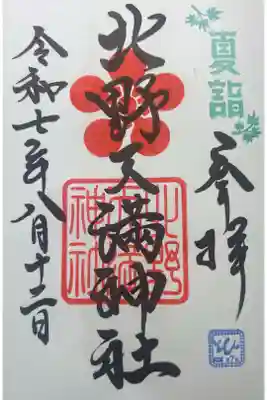 夏詣
奉拝
北野天満神社
北野天満神社
令和七年八月十二日